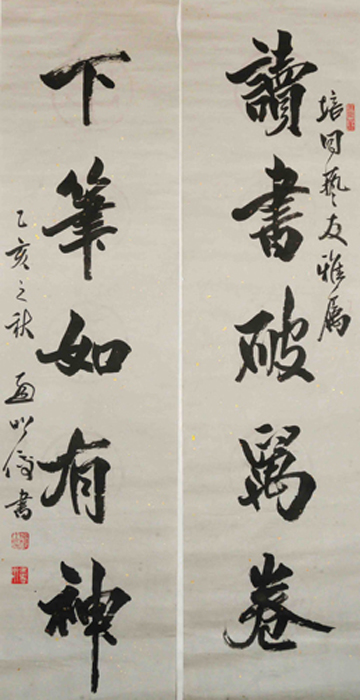 培因藝友雅屬
讀書破萬卷
下筆如有神
乙亥之秋 書